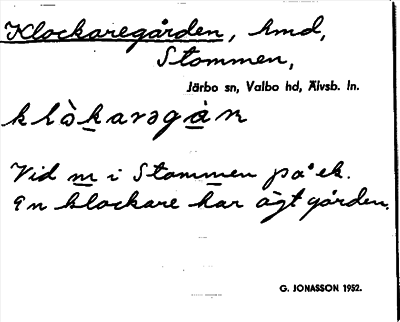 Klockaregården, hmd,
Stommen,
Järbo sn, Valbo hd, Älvsb. ln.
klòkaregàn
Vid m i Stommen på ek.
En klockare har ägt gården.
G. JONASSON 1952.